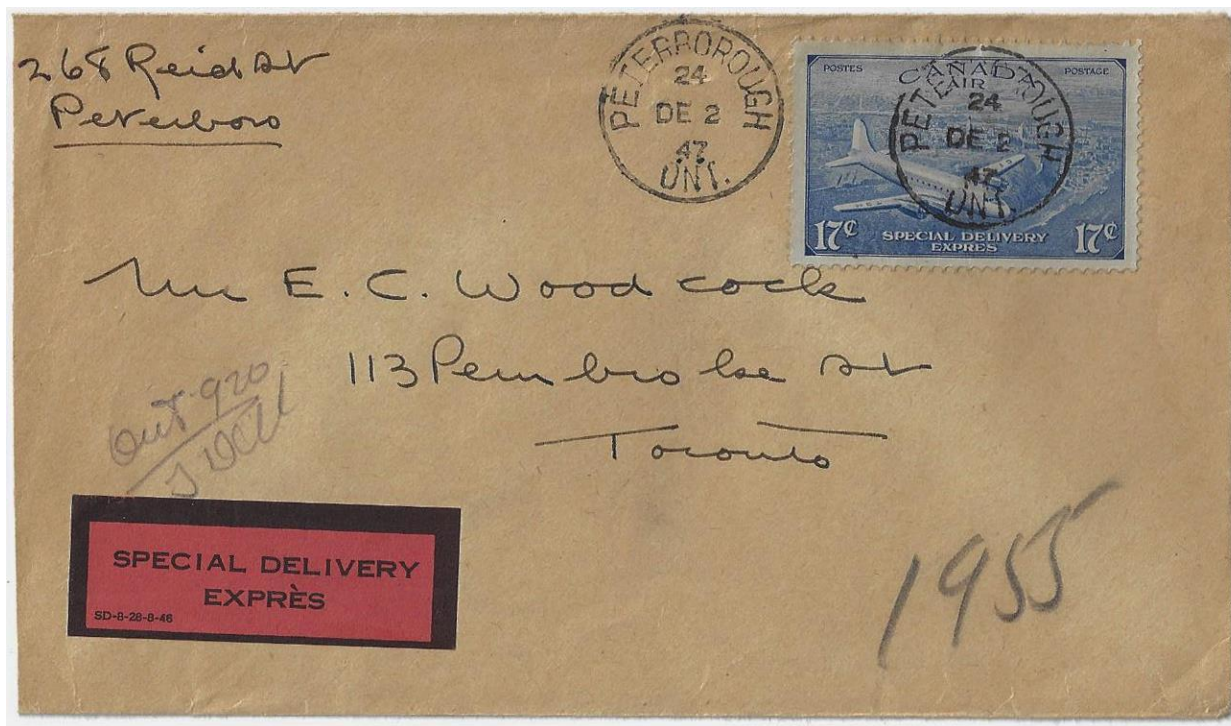 268 Reid St
Peterboro
PETERBOROUGH
24
DE 2
47
ONT.
POSTES CANADA POSTAGE
AIR
PETERBOROUGH
24
DE 2
47
ONT.
17¢ SPECIAL DELIVERY 17¢
EXPRES
Mr E. C. Woodcock
113 Pembroke St
Toronto
Out 920
SPECIAL DELIVERY
EXPRÈS
SD-8-28-8-46
1955